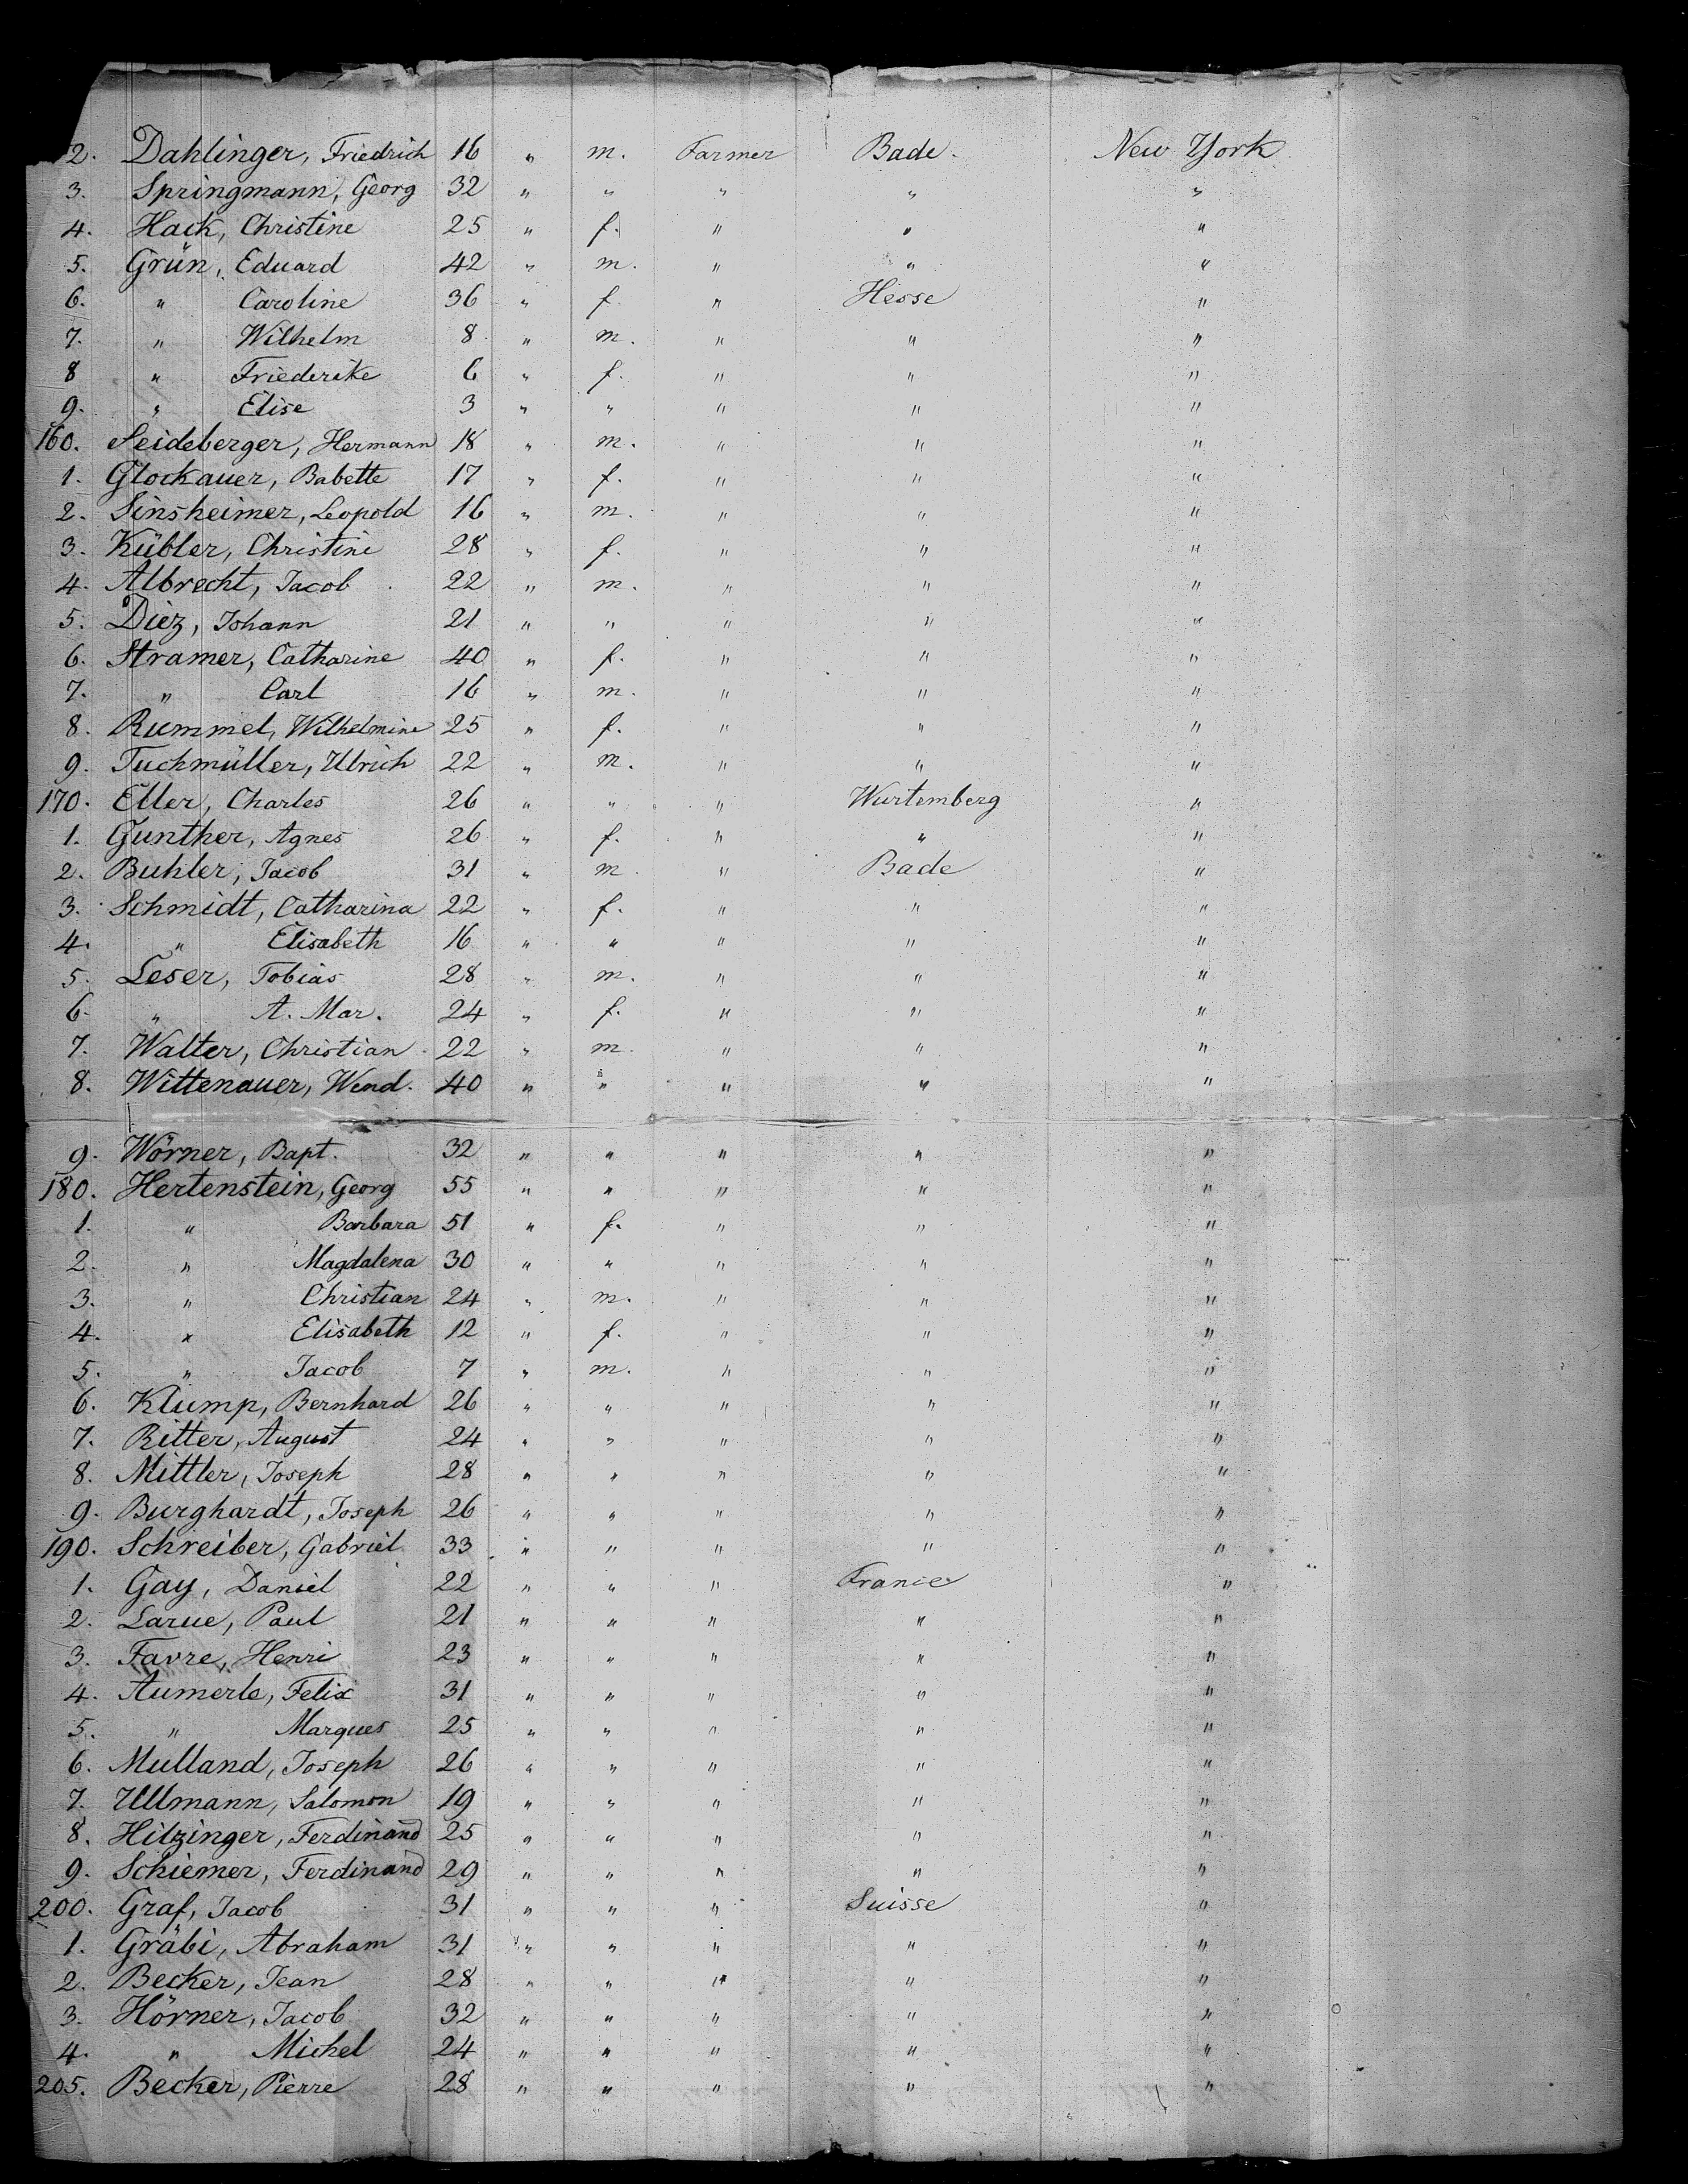 2. Dahlinger, Friedrich 16 " m. Farmer Bade. New York
3. Springmann, Georg 32 " " " " "
4. Hack, Christine 25 " f. " " "
5. Grün, Eduard 42 " m. " " "
6. " Caroline 36 " f. " Hesse "
7. " Wilhelm 8 " m. " " "
8 " Friederike 6 " f. " " "
9. " Elise 3 " " " " "
160. Seideberger, Hermann 18 " m. " " "
1. Glockauer, Babette 17 " f. " " "
2. Sinsheimer, Leopold 16 " m. " " "
3. Kübler, Christine 28 " f. " " "
4. Albrecht, Jacob 22 " m. " " "
5. Diez, Johann 21 " " " " "
6. Stramer, Catharine 40 " f. " " "
7. " Carl 16 " m. " " "
8. Rummel, Wilhelmine 25 " f. " " "
9. Tuchmüller, Ulrich 22 " m. " " "
170. Eller, Charles 26 " " " Wurtemberg "
1. Gunther, Agnes 26 " f. " " "
2. Buhler, Jacob 31 " m. " Bade "
3. Schmidt, Catharina 22 " f. " " "
4. " Elisabeth 16 " " " " "
5. Leser, Tobias 28 " m. " " "
6. " A. Mar. 24 " f. " " "
7. Walter, Christian 22 " m. " " "
8. Wittenauer, Wend. 40 " " " " "
9. Wörner, Bapt. 32 " " " " "
180. Hertenstein, Georg 55 " " " " "
1. " Barbara 51 " f. " " "
2. " Magdalena 30 " " " " "
3. " Christian 24 " m. " " "
4. " Elisabeth 12 " f. " " "
5. " Jacob 7 " m. " " "
6. Klump, Bernhard 26 " " " " "
7. Ritter, August 24 " " " " "
8. Mittler, Joseph 28 " " " " "
9. Burghardt, Joseph 26 " " " " "
190. Schreiber, Gabriel 33 " " " " "
1. Gay, Daniel 22 " " " France "
2. Larue, Paul 21 " " " " "
3. Favre, Henri 23 " " " " "
4. Aumerle, Felix 31 " " " " "
5. " Marques 25 " " " " "
6. Mulland, Joseph 26 " " " " "
7. Ullmann, Salomon 19 " " " " "
8. Hitzinger, Ferdinand 25 " " " " "
9. Schiemer, Ferdinand 29 " " " " "
200. Graf, Jacob 31 " " " Suisse "
1. Gräbi, Abraham 31 " " " " "
2. Becker, Jean 28 " " " " "
3. Hörner, Jacob 32 " " " " "
4. " Michel 24 " " " " "
205. Becker, Pierre 28 " " " " "